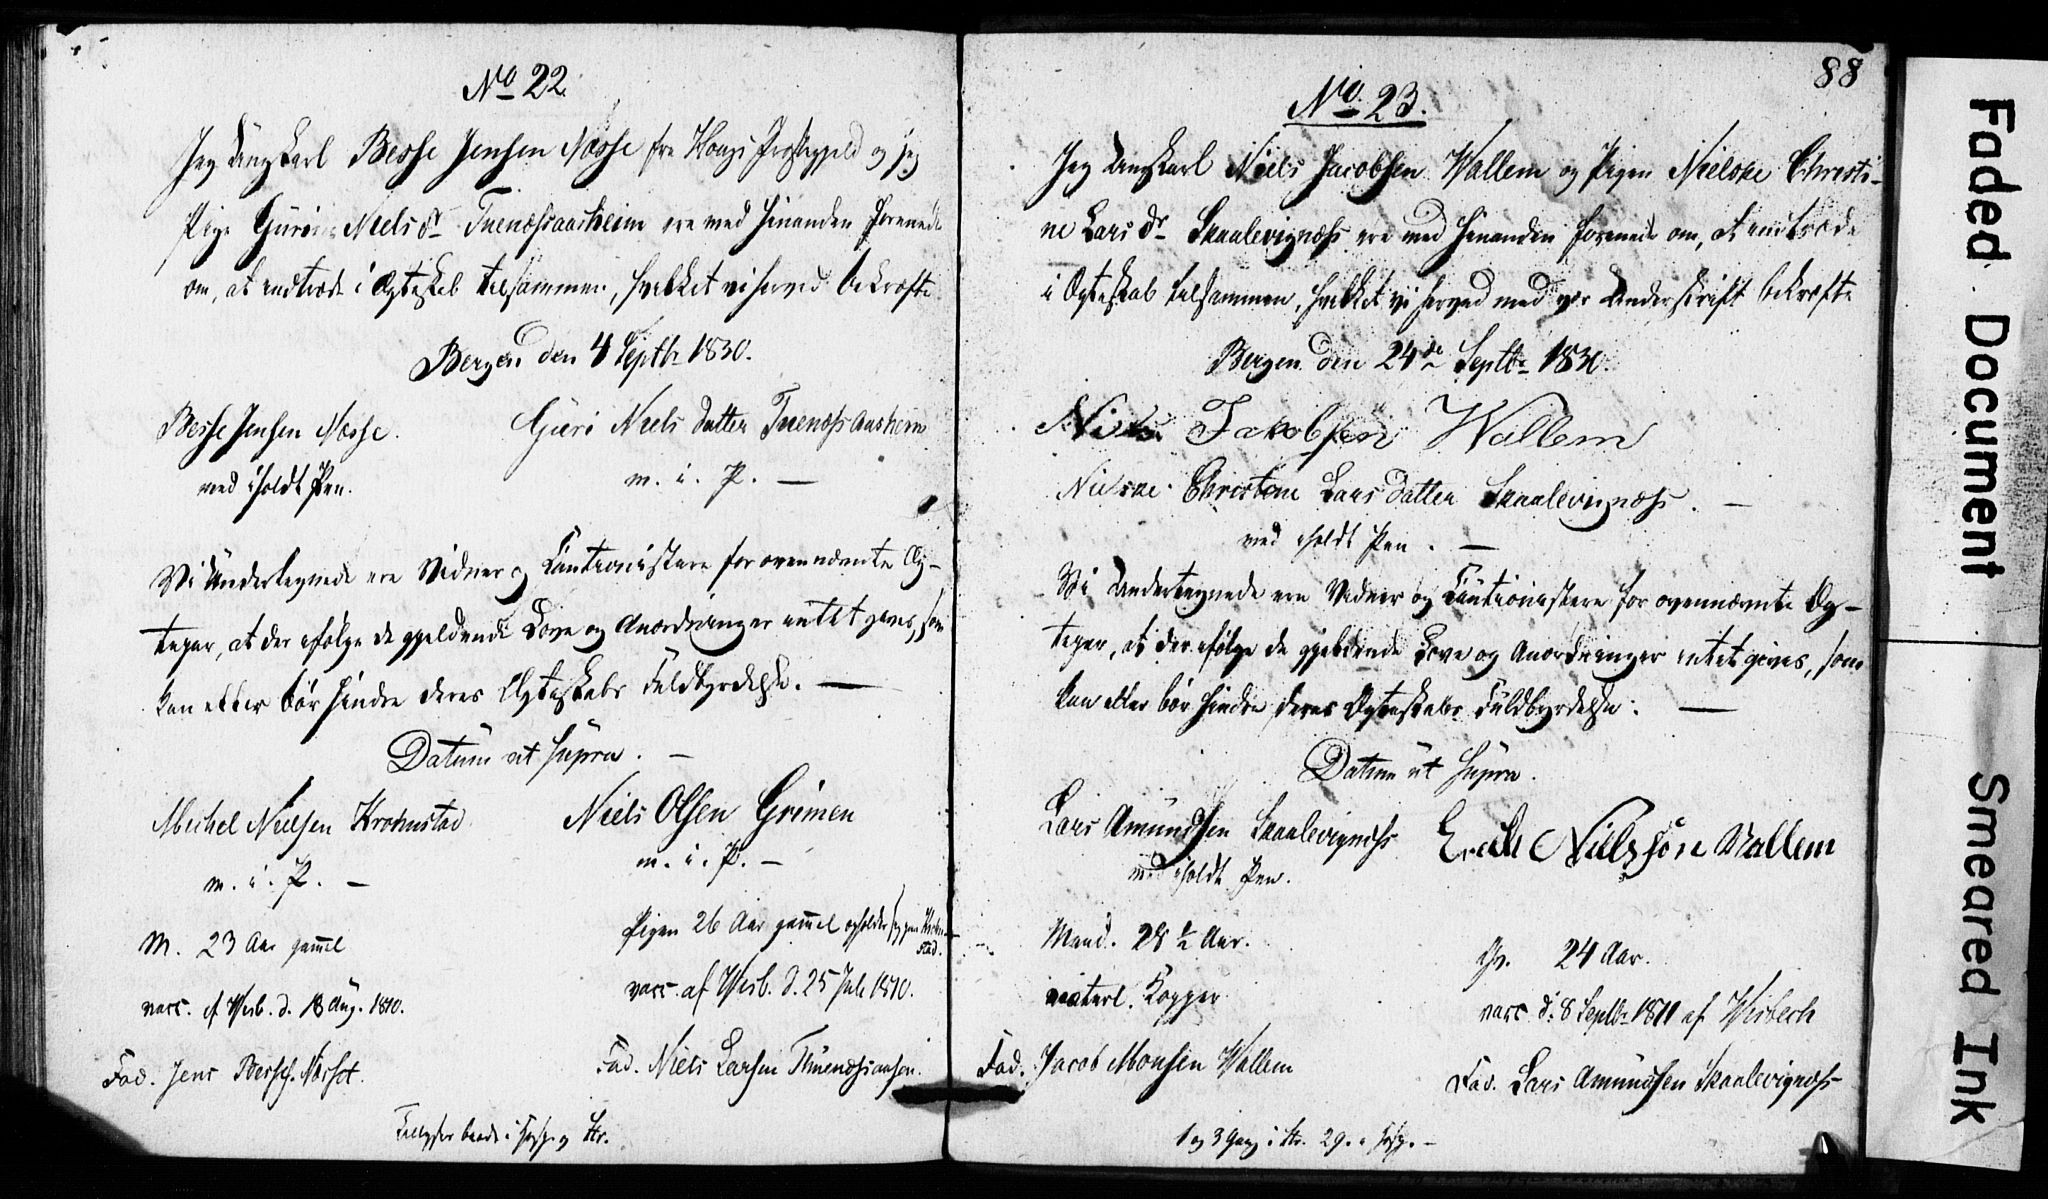 No 22.
Jeg Ungkarl Besse Jensen Næsse fra Hougs Præstegjeld og jeg
Pige Guri Niels dr Tuenæssaasheim ere med hinanden forenede
om, at indtræde i Ægteskab tilsammen, hvilket vi herved bekræfte
Bergen den 4 Septbr 1830.
Besse Jensen Næsse.
med iholdt Pen.
Guri Niels datter Tuenæssaasheim
m. i. P. —
Vi Undertegnede ere Vidner og Cautionistere for ovennævnte Æg-
tepar, at der ifølge de gjeldende Love og Anordninger intet gives, som
kan eller bør hindre deres Ægteskabs Fuldbyrdelse. —
Datum ut supra. —
Michel Nielsen Kronstad
m. i. P. —
Niels Olsen Grimen
m. i. P. —
M. 23 Aar gammel
vacc. af Wisb. d. 18 Aug. 1810.
Fad. Jens Besses. Næsset.
Pigen 26 Aar gammel opholder sig paa Kron-
stad.
vacc. af Wisb. d. 25 Juli 1810.
Fad. Niels Larsen
Tillyses baade i Hosp. og Kr.
88
No. 23.
Jeg Ungkarl Niels Jacobsen Wallem og Pigen Nielske Christi-
ne Lars dr Skaalevignæss ere med hinanden forenede om, at indtræde
i Ægteskab tilsammen, hvilket vi herved med vor Underskrift bekræfte
Bergen den 24de Septbr 1830.
Niels Jakobsen Wallem
Christine Lars datter Skaalevignæss. —
med iholdt Pen. —
Vi Undertegnede ere Vidner og Cautionistere for ovennævnte Æg-
tepar, at der ifølge de gjeldende Love og Anordninger intet gives, som
kan eller bør hindre deres Ægteskabs Fuldbyrdelse. —
Datum ut supra.
Lars Amundsen Skaalevignæss
med iholdt Pen.
Erick Nillssøn Vallem
Mand. 28 ½ Aar.
naturl. Kopper
Fad. Jacob Monsen Wallem
24 Aar.
vacc d. 8 Septbr 1811 af Wisbech
Fad. Lars Amundsen Skaalevignæss
1 og 3 Gang i Kr. 2 g. i Hosp. —
Faded Document
Smeared Ink